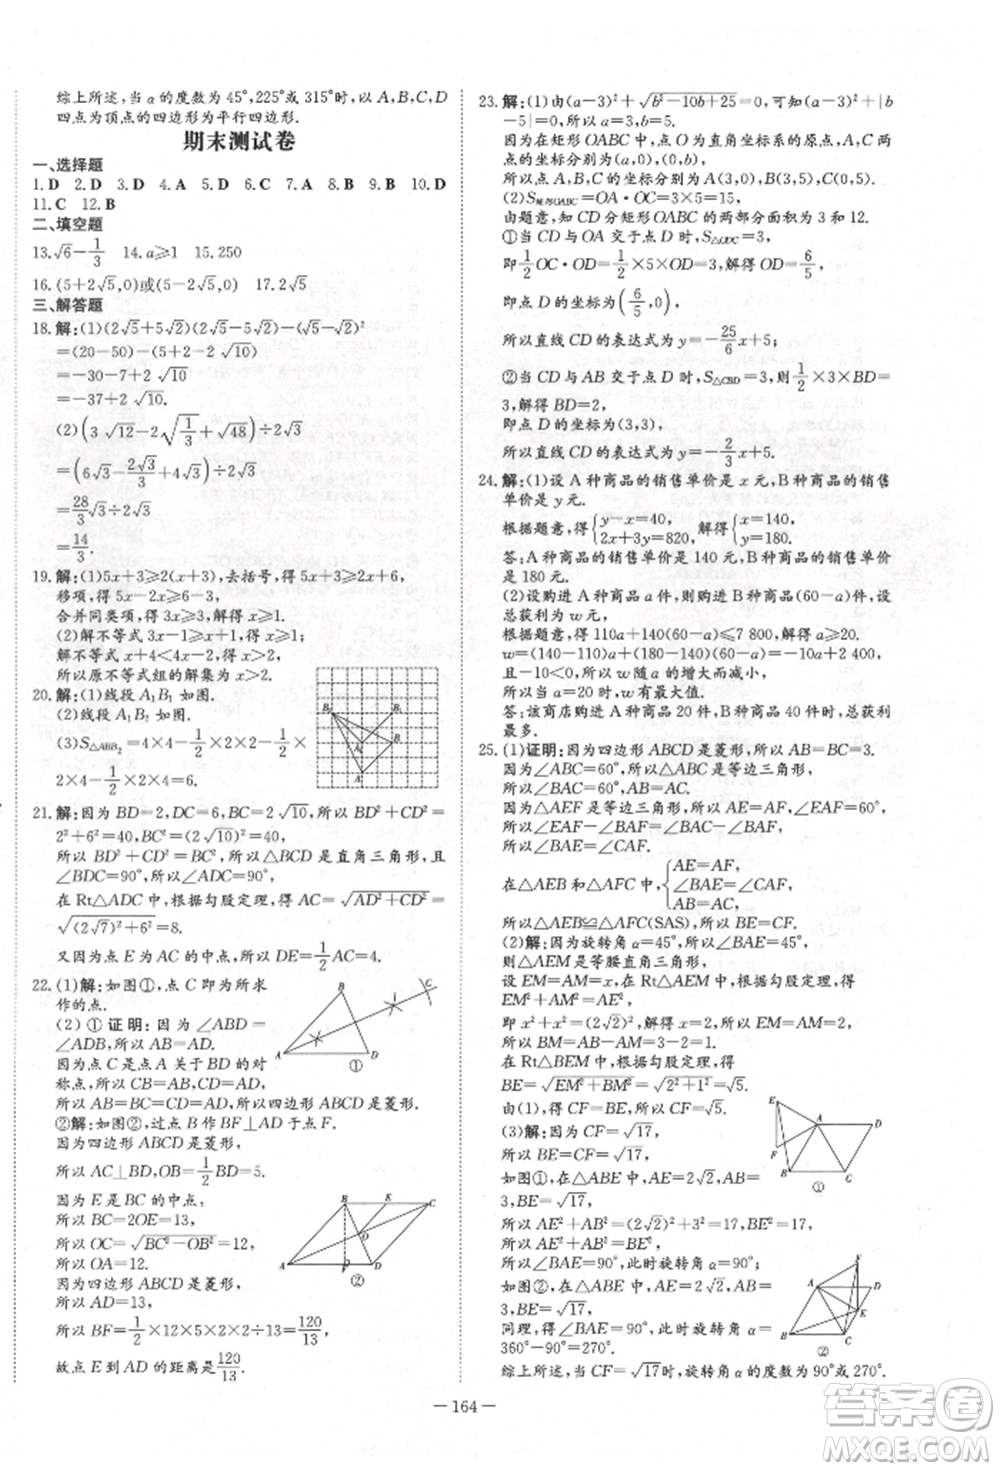 综上所述,当α的度数为45°,225°或315°时,以A,B,C,D
四点为顶点的四边形为平行四边形.
期末测试卷
一、选择题
1. D 2. D 3. D 4. A 5. D 6. B 7. B 8. B 9. B 10. D
11. C 12. B
二、填空题
13.√6−1/3 14.a⩾1 15.250
16.(5+2√5,0)或(5−2√5,0) 17.2√5
三、解答题
18.解:(1)(2√5+5√2)(2√5−5√2)−(√5−√2)²
=(20−50)−(5+2−2√10)
=−30−7+2√10
=−37+2√10.
(2)(3√12−2√(1/3)+√48)÷2√3
=(6√3−2√3/3+4√3)÷2√3
=28/3√3÷2√3
=14/3.
19.解:(1)5x+3⩾2(x+3),去括号,得5x+3⩾2x+6,
移项,得5x−2x⩾6−3,
合并同类项,得3x⩾3,解得x⩾1.
(2)解不等式3x−1⩾x+1,得x⩾1,
解不等式x+4<4x−2,得x>2,
所以原不等式组的解集为x>2.
20.解:(1)线段A₁B₁如图.
(2)线段A₁B₂如图.
(3)S△ABB₂=4×4−1/2×2×2−1/2×
2×4−1/2×2×4=6.
21.解:因为BD=2,DC=6,BC=2√10,所以BD²+DC²=
2²+6²=40,BC²=(2√10)²=40,
所以BD²+DC²=BC²,所以△BCD是直角三角形,且
∠BDC=90°,所以∠ADC=90°.
在Rt△ADC中,根据勾股定理,得AC=√(AD²+CD²)=
√((2√7)²+6²)=8.
又因为点E为AC的中点,所以DE=1/2AC=4.
22.(1)解:如图①,点C即为所求
作的点.
(2)①证明:因为∠ABD=
∠ADB,所以AB=AD.
因为点C是点A关于BD的对
称点,所以CB=AB,CD=AD,
所以AB=BC=CD=AD,所以四边形ABCD是菱形.
②解:如图②,过点B作BF⊥AD于点F.
因为四边形ABCD是菱形,
所以AC⊥BD,OB=1/2BD=5.
因为E是BC的中点,
所以BC=2OE=13,
所以OC=√(BC²−OB²)=12,
所以OA=12.
因为四边形ABCD是菱形,
所以AD=13,
所以BF=1/2×12×5×2×2÷13=120/13,
故点E到AD的距离是120/13.
23.解:(1)由(a−3)²+√(b²−10b+25)=0,可知(a−3)²+|b
−5|=0,所以a=3,b=5.
因为在矩形OABC中,点O为直角坐标系的原点,A,B两
点的坐标分别为(a,0),(a,b),
所以点A,B的坐标分别为A(3,0),B(3,5).
(2)S矩形OABC=OA·OC=3×5=15,
由题意,知CD分矩形OABC的两部分面积为3和12.
①当CD与OA交于点D时,S△ODC=3,
即1/2OC·OD=1/2×5×OD=3,解得OD=6/5,
即点D的坐标为(6/5,0),
所以直线CD的表达式为y=−25/6x+5;
②当CD与AB交于点D时,S△CBD=3,即1/2×3×BD=
3,解得BD=2,
即点D的坐标为(3,3),
所以直线CD的表达式为y=−2/3x+5.
24.解:(1)设A种商品的销售单价是x元,B种商品的销售
单价是y元.
根据题意,得{y−x=40,2x+3y=820,解得{x=140,y=180.
答:A种商品的销售单价是140元,B种商品的销售单价
是180元.
(2)设购进A种商品a件,则购进B种商品(60−a)件,总
获利为w元.
根据题意,得110a+140(60−a)⩽7 800,解得a⩾20.
w=(140−110)a+(180−140)(60−a)=−10a+2 400,
且−10<0,所以w随a的增大而减小,
所以当a=20时,w有最大值.
答:该商店购进A种商品20件,B种商品40件时,总获利
最多.
25.(1)证明:因为四边形ABCD是菱形,所以AB=BC=3.
因为∠ABC=60°,所以△ABC是等边三角形.
因为△AEF是等边三角形,所以∠EAF=∠BAC=60°,
所以∠EAF−∠BAF=∠BAC−∠BAF,
所以∠BAE=∠CAF.
在△AEB和△AFC中,{AE=AF,∠BAE=∠CAF,AB=AC,
所以△AEB≌△AFC(SAS),所以BE=CF.
(2)解:因为旋转角α=45°,所以∠EAM=45°,
则△AEM是等腰直角三角形.
设EM=AM=x,在Rt△AEM中,根据勾股定理,得
EM²+AM²=AE²,
即x²+x²=(2√2)²,解得x=2,所以EM=AM=2,
所以BM=AB−AM=3−2=1.
在Rt△BEM中,根据勾股定理,得
BE=√(EM²+BM²)=√(2²+1²)=√5.
由(1),得BE=CF,所以CF=√5.
(3)解:因为CF=√17,
所以BE=CF=√17.
如图①,在△AEB中,AE=2√2,AB=
3,BE=√17,
所以AE²+AB²=(2√2)²+3²=17=BE²,
所以∠BAE=90°,此时旋转角α=90°;
如图②,在△AEB中,AE=2√2,AB=
3,BE=√17,
同理,得∠BAE=90°,此时旋转角α=
360°−90°=270°.
综上所述,当CF=√17时,旋转角α的度数为90°或270°.
－164－
答案圈
MXQE.COM